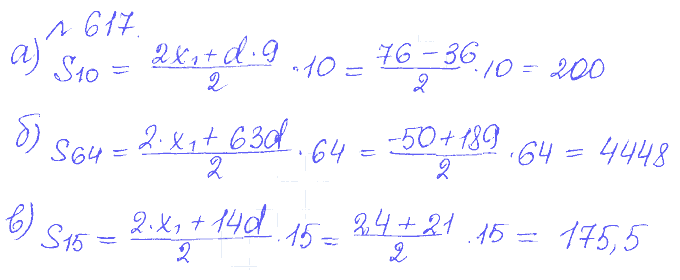 № 617.
а) S₁₀ = (2x₁ + d·9)/2 · 10 = (76 − 36)/2 · 10 = 200
б) S₆₄ = (2·x₁ + 63d)/2 · 64 = (−50 + 189)/2 · 64 = 4448
в) S₁₅ = (2·x₁ + 14d)/2 · 15 = (2,4 + 21)/2 · 15 = 175,5